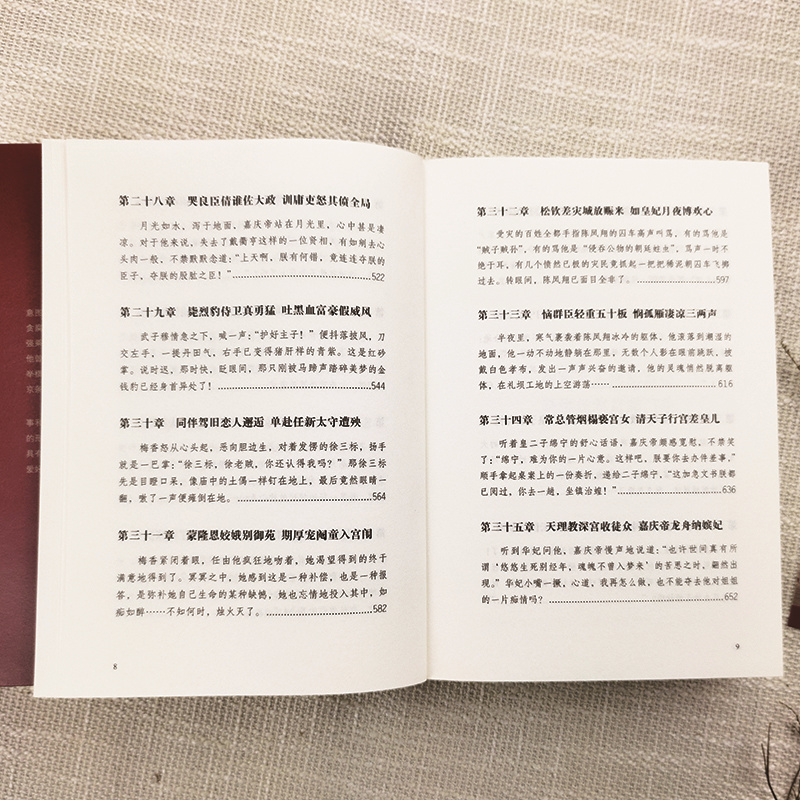 第二十八章 哭良臣倩谁佐大政 训庸吏怒其偾全局
月光如水，泻于地面，嘉庆帝站在月光里，心中甚是凄
凉。对于他来说，失去了戴衢亨这样的一位贤相，有如剜去心
头肉一般，不禁默默念道：“上天啊，朕有何错，竟连连夺朕的
臣子，夺朕的股肱之臣！”
522
第二十九章 毙烈豹侍卫真勇猛 吐黑血富豪假威风
武子穆情急之下，喊一声：“护好主子！”便抖落披风，刀
交左手，一提丹田气，右手已变得猪肝样的青紫。这是红砂
掌。说时迟，那时快，眨眼间，那只刚被马蹄声踏碎美梦的金
钱豹已经身首异处了！
544
第三十章 同伴驾旧恋人邂逅 单赴任新太守遭殃
梅香怒从心头起，恶向胆边生，对着发愣的徐三标，扬手
就是一巴掌：“徐三标，徐老贼，你还认得我吗？”那徐三标
先是目瞪口呆，像庙中的土偶一样钉在地上，最后竟然眼睛一
翻，嗷了一声便瘫倒在地。
564
第三十一章 蒙隆恩姣娥别御苑 期厚宠阉童入宫闱
梅香紧闭着眼，任由他疯狂地吻着，她渴望得到的终于
满意地得到了。冥冥之中，她感到这是一种补偿，也是一种报
答，是弥补她自己生命的某种缺憾，她也忘情地投入其中，如
痴如醉……不知何时，烛火灭了。
582
8
第三十二章 松钦差灾城放赈来 如皇妃月夜博欢心
受灾的百姓全都手指陈凤翔的囚车高声叫骂，有的骂他是
“贼子贼孙”，有的骂他是“侵吞公物的朝廷蛀虫”，骂声一时不
绝于耳，有几个愤然已极的灾民竟抓起一把把稀泥朝囚车飞掷
过去。转眼间，陈凤翔已面目全非了。
597
第三十三章 恼群臣轻重五十板 悯孤雁凄凉三两声
半夜里，寒气裹袭着陈凤翔冰冷的躯体，他滚落到潮湿的
地面，他一动不动地静躺在那里，无数个人影在眼前跳跃，披
戴白色孝布，发出一声声兴奋的邀请，他的灵魂悄然脱离躯
体，在礼坝工地的上空游荡……
616
第三十四章 常总管烟榻亵宫女 清天子行宫差皇儿
听着皇二子绵宁的舒心话语，嘉庆帝顺感宽慰，不禁笑
了：“绵宁，难为你的一片心意。这样吧，朕要你去办件差事，”
顺手拿起桌案上的一份奏折，递给二子绵宁，“这加急文书朕都
已阅过，你去一趟，坐镇治蝗！”
636
第三十五章 天理教深宫收徒众 嘉庆帝龙舟纳嫔妃
听到华妃问他，嘉庆帝慢声地说道：“也许世间真有所
谓‘悠悠生死别经年，魂魄不曾入梦来’的苦思之时，翩然出
现。”华妃小嘴一撅，心道，我再怎么做，也不能夺去他对姐姐
的一片痴情吗？
652
9